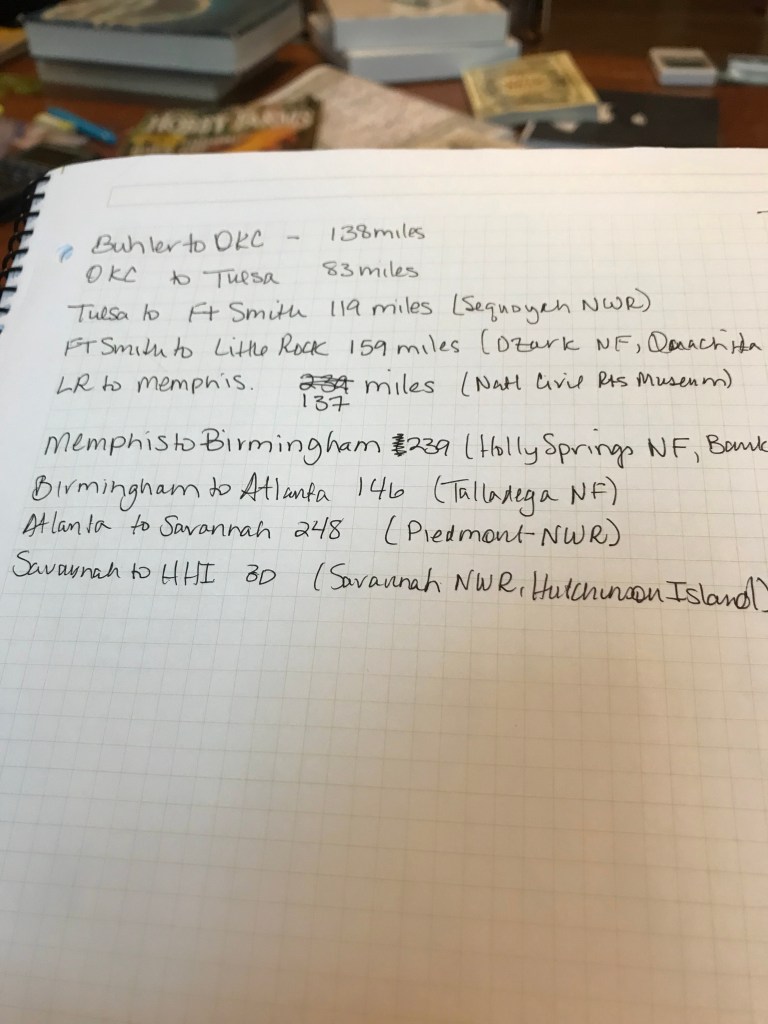 HOBBY FARMS
Buhler to OKC - 138 miles
OKC to Tulsa 83 miles
Tulsa to Ft Smith 119 miles (Sequoyah NWR)
FT Smith to Little Rock 159 miles (Ozark NF, Ouachita
LR to Memphis. 234 miles (Natl Civil Rts Museum)
137
Memphis to Birmingham 239 (Holly Springs NF, Bank
Birmingham to Atlanta 146 (Talladega NF)
Atlanta to Savannah 248 (Piedmont NWR)
Savannah to HHI 30 (Savannah NWR, Hutchinson Island)